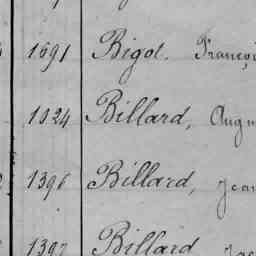 1691 Bigot. Françoi
1824 Billard, Augu
1396 Billard, Jean
1397 Billard